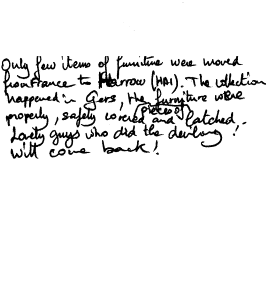 Only few items of furniture were moved
from France to Harrow (HA1). The collection
happened in Gers, the pieces of furniture were
properly, safely covered and latched.
Lovely guys who did the delivery!
Will come back!